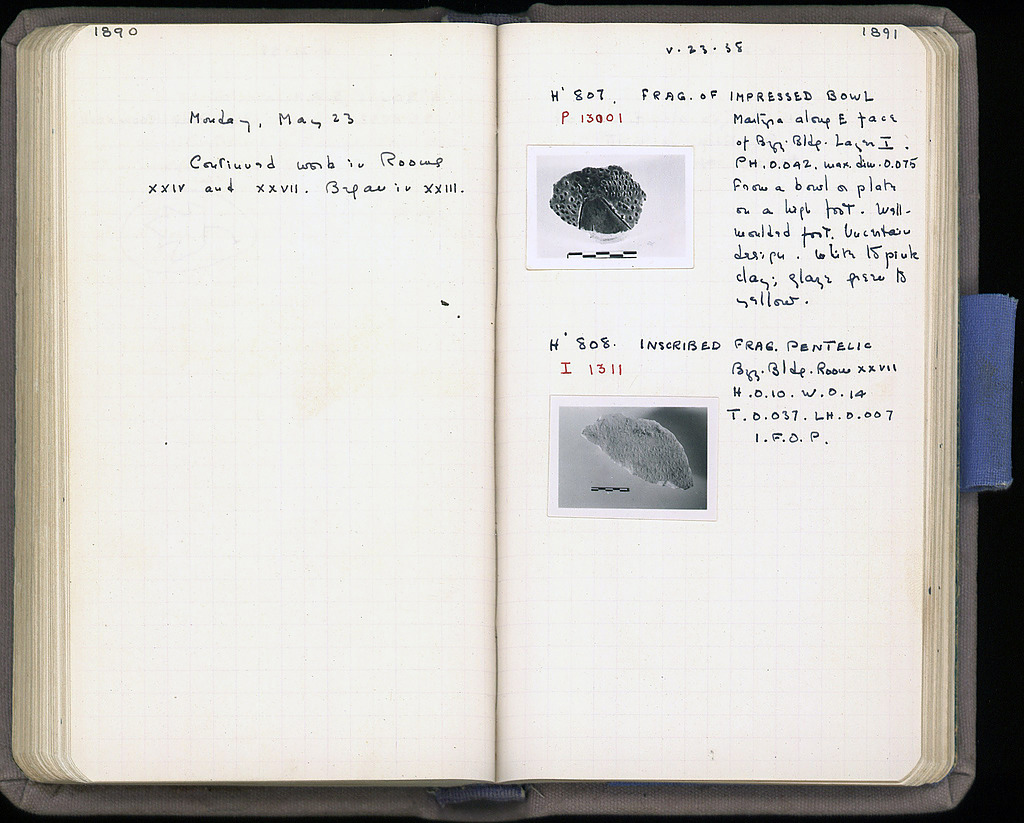 1890
Monday, May 23
Continued work in Rooms
XXIV and XXVII. Began in XXIII.
1891
V. 23. 38
H' 807. FRAG. OF IMPRESSED BOWL
P 13001
along E face
of Byz. Bldg. Layer I.
PH. 0.042. max. dim. 0.075
From a bowl or plate
on a high foot. Well-
moulded foot. Uncertain
design. White to pink
clay; glaze green to
yellow.
H' 808. INSCRIBED FRAG. PENTELIC
I 1311
Byz. Bldg. Room XXVII
H. 0.10. W. 0.14
T. 0.037. LH. 0.007
I. F. O. P.